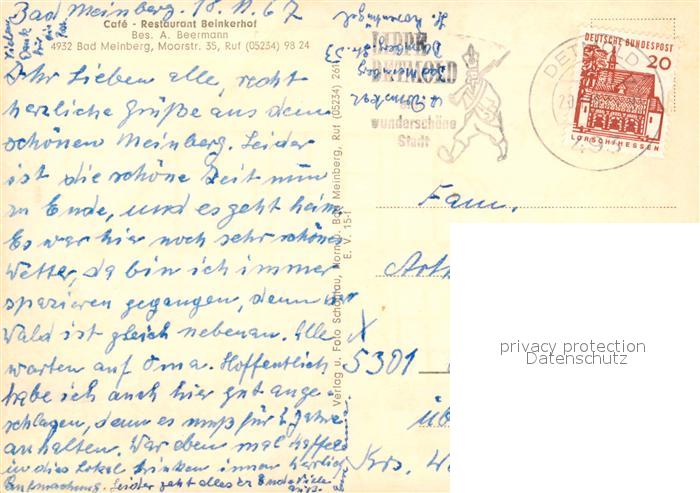 Bad Meinberg. 18.11.67
Café - Restaurant Beinkerhof
Bes. A. Beermann
4932 Bad Meinberg, Moorstr. 35, Ruf (05234) 98 24
Vielen Dank für die
Ihr Lieben alle, recht
herzliche Grüße aus dem
schönen Meinberg. Leider
ist die schöne Zeit nun
zu Ende, und es geht heim.
Es war hier noch sehr schönes
Wetter, da bin ich immer
spazieren gegangen, denn der
Wald ist gleich nebenan. Alle
warten auf Oma. Hoffentlich
habe ich auch hier gut ange-
schlagen, denn es muß für 2 Jahre
anhalten. War eben mal Kaffee
in dies Lokal trinken innen herrlich
Aufmachung. Leider geht alles zu Ende viele
Verlag u. Foto Schattau, Horn u. Bad Meinberg, Ruf (05234) 261
E. V. 15-f
LIPPE
DETMOLD
eine
wunderschöne
Stadt
Bad Meinberg
DETMOLD
493
DEUTSCHE BUNDESPOST
20
LORSCH/HESSEN
Fam.
Arth
5301
üb
Krs. W
privacy protection
Datenschutz